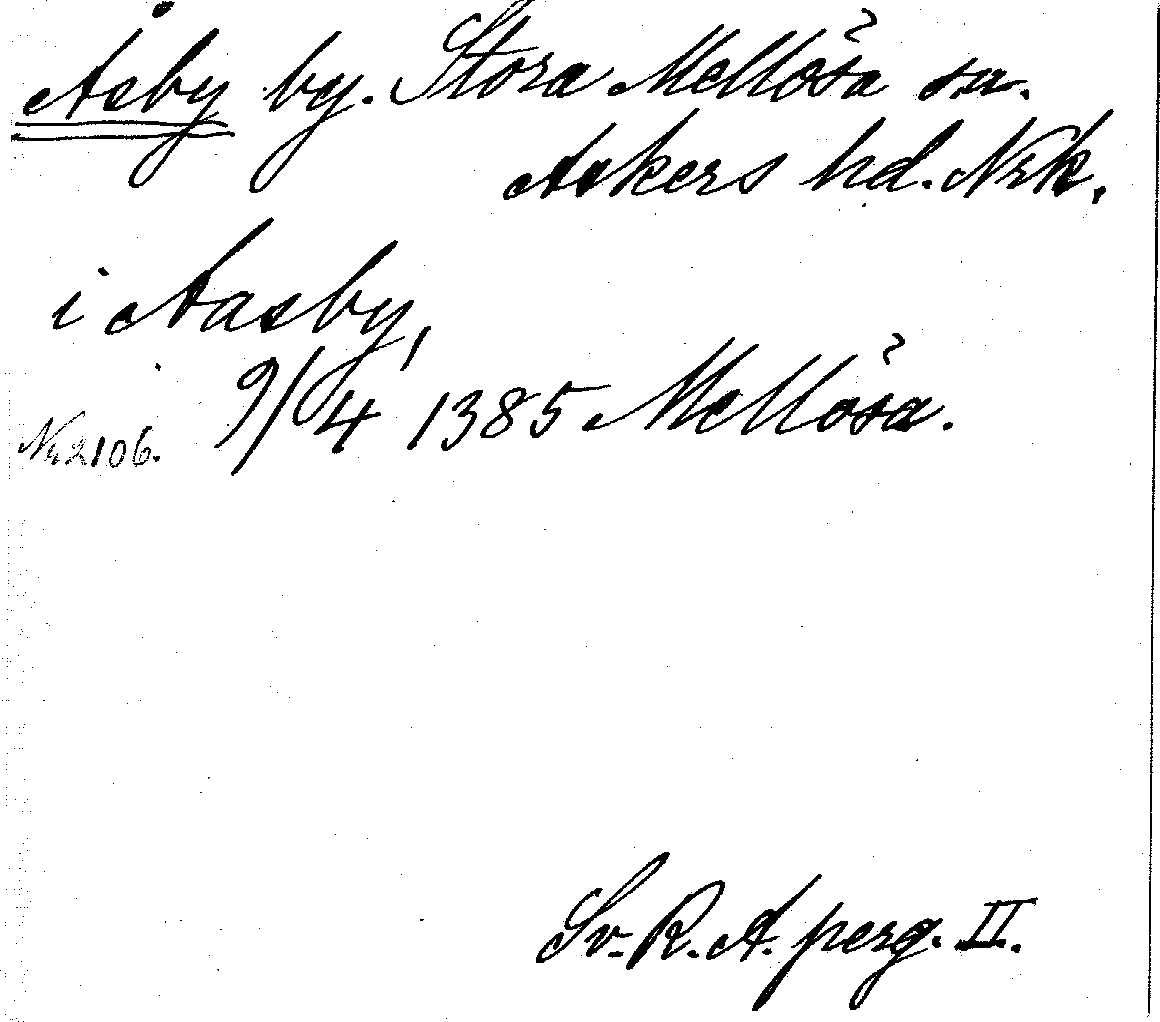 Åsby by. Stora Mellösa sn.
Askers hd. Nrk.
i Aasby,
9/4 1385 Mellösa.
Nr 2106.
Sv. R. A. perg. II.